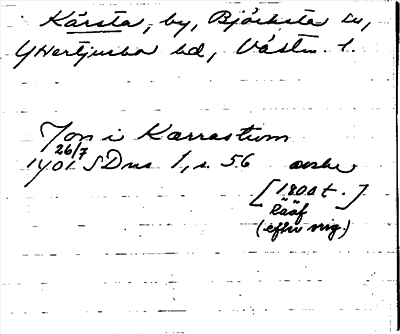 Kärsta, by, Björksta sn,
Yttertjurbo hd, Västm. l.
Jon i Karrastum
26/7
1401 SDns 1, s. 56 avskr
[1800 t.]
Rääf
(efter orig.)